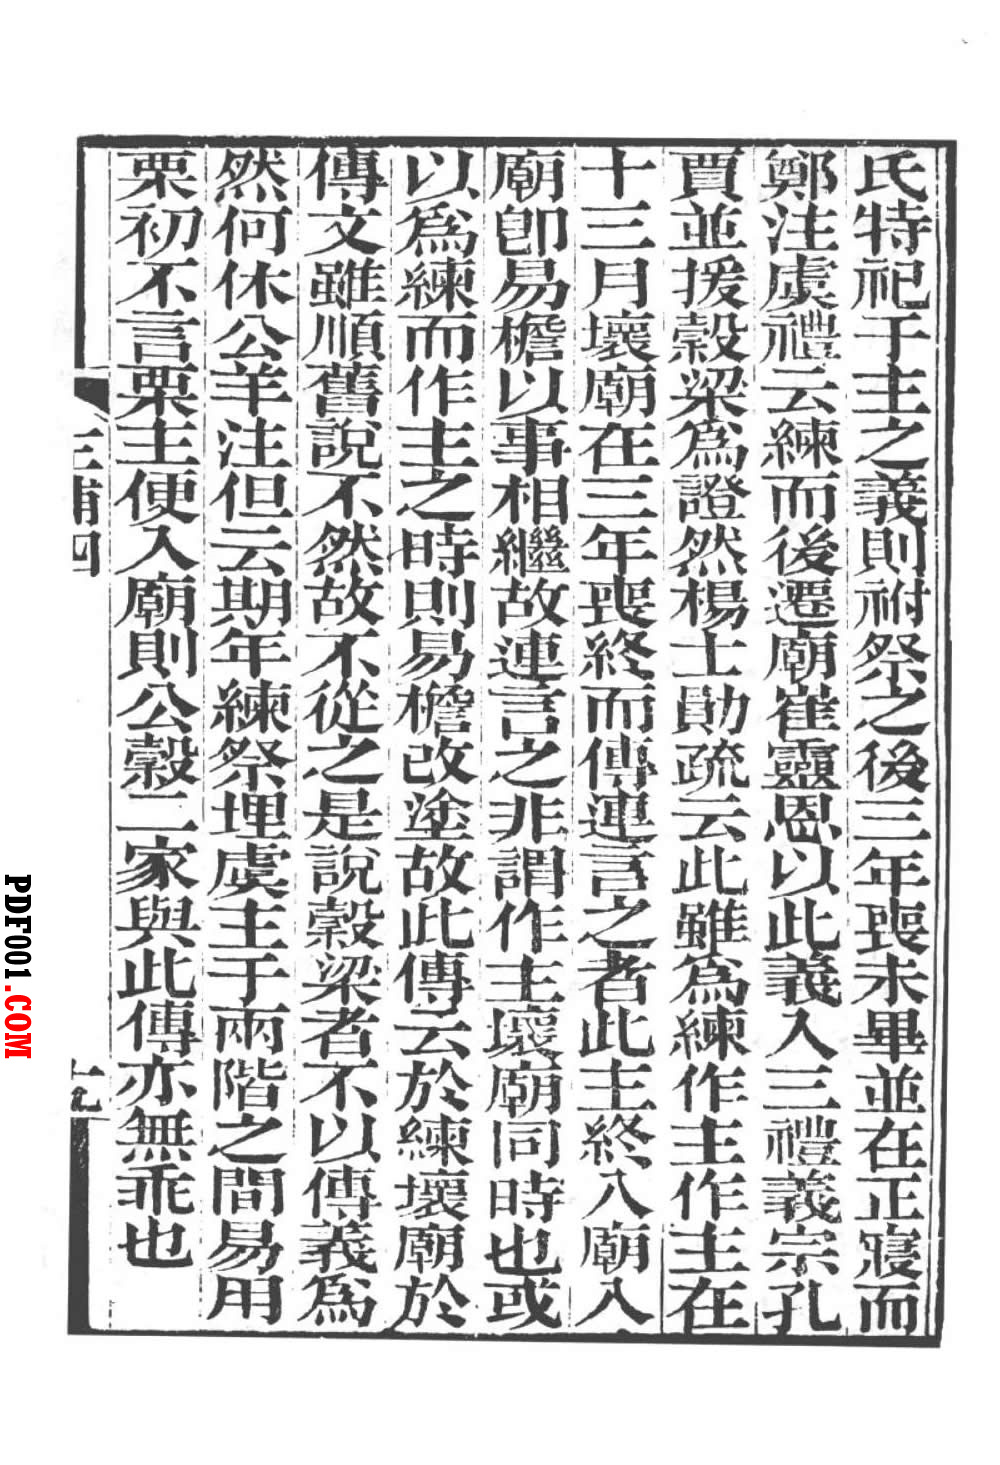 氏特祀于主之義則祔祭之後三年喪未畢並在正寢而
鄭注虞禮云練而後遷廟崔靈恩以此義入三禮義宗孔
賈並援穀梁爲證然楊士勛疏云此雖爲練作主作主在
十三月壞廟在三年喪終而傳連言之者此主終入廟入
廟卽易檐以事相繼故連言之非謂作主壞廟同時也或
以爲練而作主之時則易檐改塗故此傳云於練壞廟於
傳文雖順舊說不然故不從之是說穀梁者不以傳義爲
然何休公羊注但云期年練祭埋虞主于兩階之間易用
栗初不言栗主便入廟則公穀二家與此傳亦無乖也
PDF001.COM